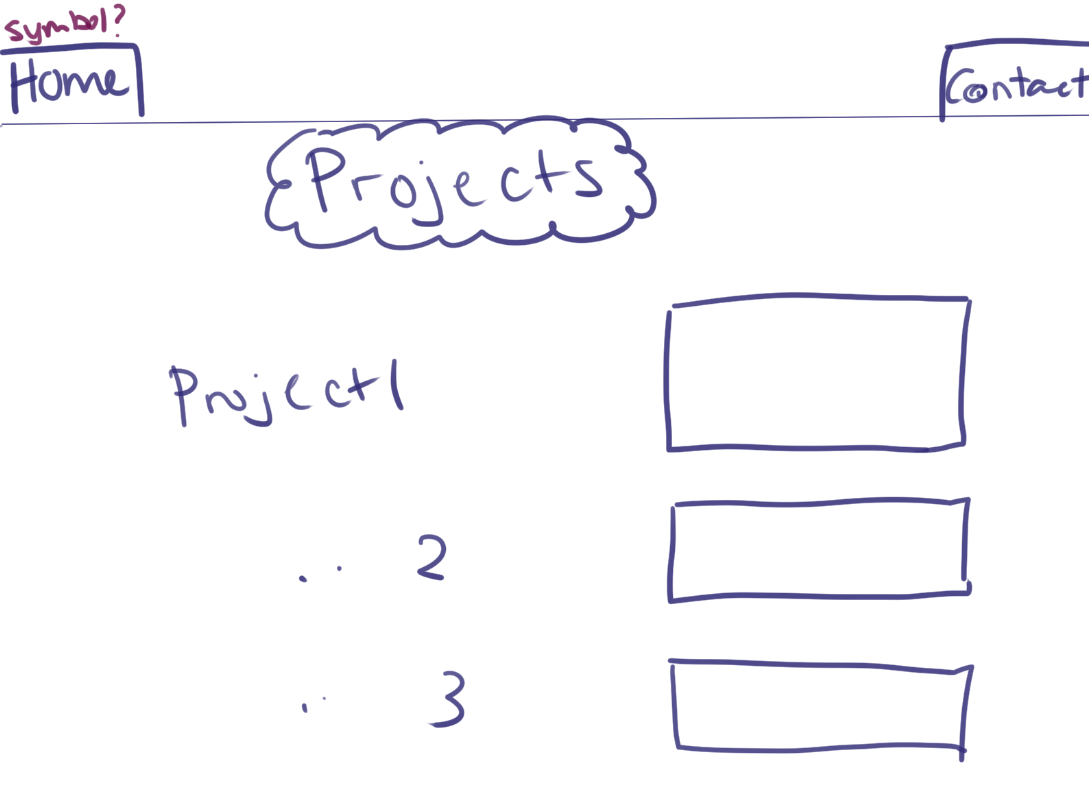 symbol?
Home
Contact
Projects
Project 1
.. 2
.. 3